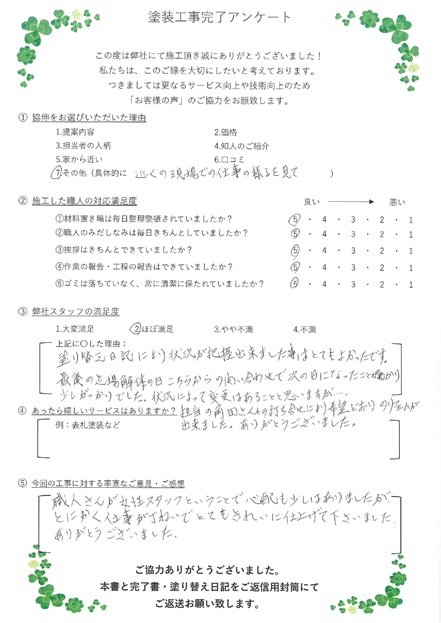 塗装工事完了アンケート
この度は弊社にて施工頂き誠にありがとうございました！
私たちは、このご縁を大切にしたいと考えております。
つきましては更なるサービス向上や技術向上のため
「お客様の声」のご協力をお願致します。
① 協伸をお選びいただいた理由
1.提案内容 2.価格
3.担当者の人柄 4.知人のご紹介
5.家から近い 6.口コミ
⑦その他（具体的に 近くの現場での仕事の様子を見て ）
② 施工した職人の対応満足度 良い 悪い
①材料置き場は毎日整理整頓されていましたか？ ⑤・4・3・2・1
②職人のみだしなみは毎日きちんとしていましたか？ ⑤・4・3・2・1
③挨拶はきちんとできていましたか？ ⑤・4・3・2・1
④作業の報告・工程の報告はできていましたか？ ⑤・4・3・2・1
⑤ゴミは落ちていなく、常に清潔に保たれていましたか？ ⑤・4・3・2・1
③ 弊社スタッフの満足度
1.大変満足 ②ほぼ満足 3.やや不満 4.不満
上記に○した理由：
塗り替え日記により状況が把握出来ました事はとてもよかったです。
最後の足場解体の日こちらからの問い合わせで次の日になったこと
少し がっかりでした。状況によって変更はあることと思いますが…
④ あったら嬉しいサービスはありますか？ 担当の角田さんの打ち合せにより希望どおりのリフォームが
例：表札塗装など 出来ました。ありがとうございました。
⑤ 今回の工事に対する率直なご意見・ご感想
職人さんが女性スタッフということで心配も少しはありましたが
とにかく仕事がていねいでとてもきれいに仕上げて下さいました。
ありがとうございました。
ご協力ありがとうございました。
本書と完了書・塗り替え日記をご返信用封筒にて
ご返送お願い致します。